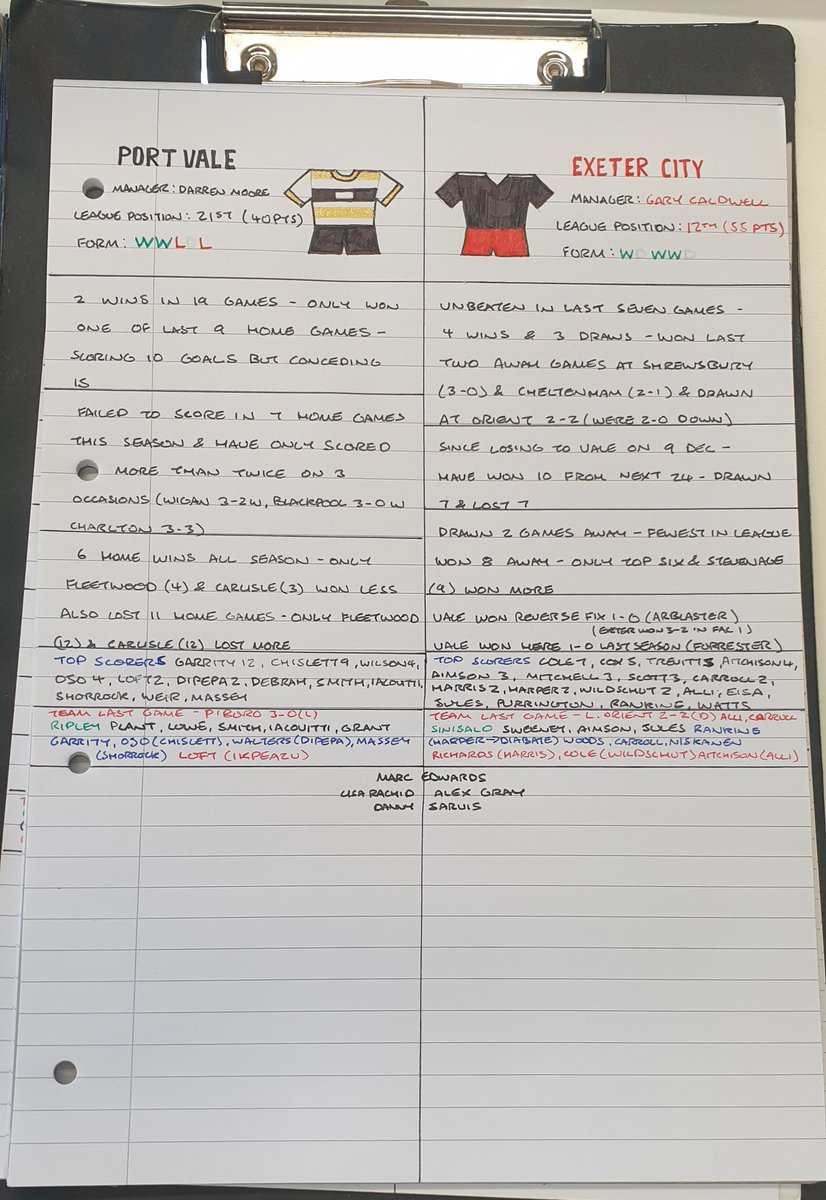 PORT VALE
MANAGER: DARREN MOORE
LEAGUE POSITION: 21ST (40PTS)
FORM: WWLDL
2 WINS IN 19 GAMES - ONLY WON
ONE OF LAST 9 HOME GAMES -
SCORING 10 GOALS BUT CONCEDING
15
FAILED TO SCORE IN 7 HOME GAMES
THIS SEASON & HAVE ONLY SCORED
MORE THAN TWICE ON 3
OCCASIONS (WIGAN 3-2W, BLACKPOOL 3-0W
CHARLTON 3-3)
6 HOME WINS ALL SEASON - ONLY
FLEETWOOD (4) & CARLISLE (3) WON LESS
ALSO LOST 11 HOME GAMES - ONLY FLEETWOOD
(12) & CARLISLE (12) LOST MORE
TOP SCORERS GARRITY 12, CHISLETT 9, WILSON 4,
OSO 4, LOFT 2, DIPEPA 2, DEBRAH, SMITH, IACOVITTI,
SHORROCK, WEIR, MASSEY
TEAM LAST GAME - P'BORO 3-0 (L)
RIPLEY PLANT, LOWE, SMITH, IACOVITTI, GRANT
GARRITY, OJO (CHISLETT), WALTERS (DIPEPA), MASSEY
(SHORROCK) LOFT (IKPEAZU)
EXETER CITY
MANAGER: GARY CALDWELL
LEAGUE POSITION: 12TH (55 PTS)
FORM: WDWWD
UNBEATEN IN LAST SEVEN GAMES -
4 WINS & 3 DRAWS - WON LAST
TWO AWAY GAMES AT SHREWSBURY
(3-0) & CHELTENHAM (2-1) & DRAWN
AT ORIENT 2-2 (WERE 2-0 DOWN)
SINCE LOSING TO VALE ON 9 DEC -
HAVE WON 10 FROM NEXT 24 - DRAWN
7 & LOST 7
DRAWN 2 GAMES AWAY - FEWEST IN LEAGUE
WON 8 AWAY - ONLY TOP SIX & STEVENAGE
(9) WON MORE
VALE WON REVERSE FIX 1-0 (ARBLASTER)
(EXETER WON 3-2 IN FAC 1)
VALE WON HERE 1-0 LAST SEASON (FORRESTER)
TOP SCORERS COLE 7, COX 5, TREVITT 5 AITCHISON 4,
AIMSON 3, MITCHELL 3, SCOTT 3, CARROLL 2,
HARRIS 2, HARPER 2, WILDSCHUT 2, ALLI, EISA,
JULES, PURRINGTON, RANKINE, WATTS
TEAM LAST GAME - L. ORIENT 2-2 (D) ALLI, CARROLL
SINISALO SWEENEY, AIMSON, JULES RANKINE
(HARPER → DIABATE) WOODS, CARROLL, NISKANEN
RICHARDS (HARRIS), COLE (WILDSCHUT) AITCHISON (ALLI)
MARC EDWARDS
LISA RACHID ALEX GRAY
DANNY SARVIS